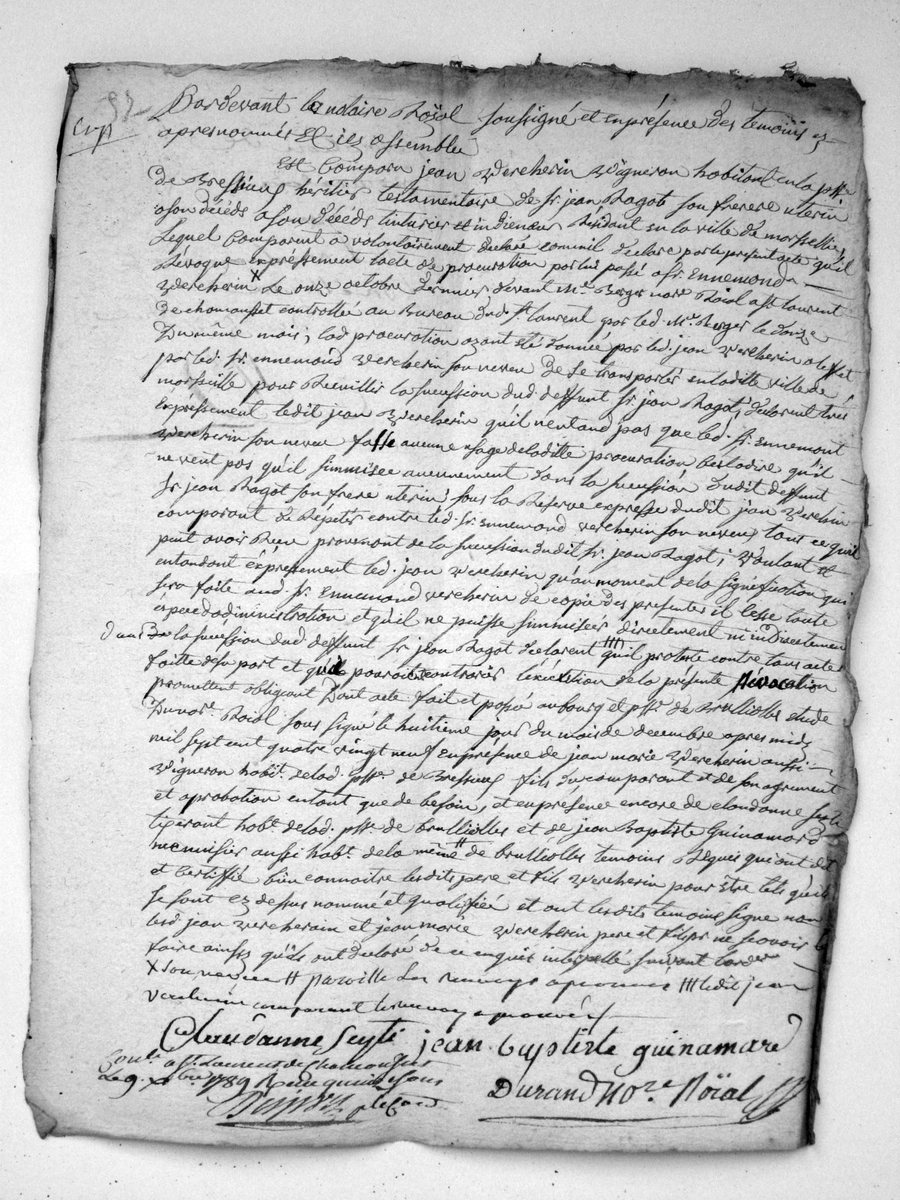 Pardevant le notaire Roïal soussigné et en présence des temoins
apres nommés et ici assemblé
Est Comparu jean Vercherin Vigneron habitant en la psse
De Bressieus héritier testamentaire de Sr jean Ragot son frerere uterin
a son décéds a son décéds tinturier et indieneur Résidant en la ville de morsellies
Lequel Comparant a volontairement declaré comme il declare par le present acte qu'il
Révoque expréssement lacte de procuration par lui passé a Sr Ennemond
Vercherin X Le onze octobre dernier devant Me Berger nore Roïal a St Laurent
De chamousset controllée au Bureau dud. St Laurent par led. Me Berger le douze
Du même mois; lad procuration ayant été donnee par led. jean Vercherin a leffet
par led. Sr ennemond Vercherin son neveu De se transporter en ladite ville de
morseille pour Receuillir la succession dud deffunt Sr jean Ragot, declarent tres
Expressement ledit jean Vercherin qu'il nentand pas que led. Sr Ennemont
Vercherin son neveu fasse aucune usage de ladite procuration cest a dire qu'il
ne veut pas qu'il simmisee aucunement dans la succession dudit deffunt
Sr jean Ragot son frere uterin, sous la Réserve expresse dudit jean Vercherin
comparant de Répeter contre led. Sr Ennemond vercherin son neveu tous ce qu'il
peut avoir Reçu provenant de la succession dudit Sr jean Ragot; Voulant et
entandant éxpressement led. jean Vercherin qu'au moment de la signification qui
sera faite aud. Sr Ennemond vercherin de copie des presentes il cesse toute
éspece dadministration et qu'il ne puisse simmiser directement ni indirectement
dans la succession dud deffunt Sr jean Ragot declarent #### qu'il proteste contre tous acte
faitte de sa part et qui pouroit contrarier lexécution de la présente Revocation
promettent obligeant Dont acte fait et passé au bourg et psse de Brullioles etude
Du nore Roïal sous signé le huitième jour du mois de decembre apres midy
mil sept cent quatre vingt neuf en présence de jean marie Vercherin aussi
Vigneron habt. de lad. psse de Bressieus fils du comparant et de son agrement
et aprobation en tant que de besoin, et en présence encore de claudanne Seyte
tixerant habt de lad. psse de brullioles et de jean Baptiste Guinamard
menuisier aussi habt. de la même # de brullioles temoins Requis qui ont dit
et Certiffié bien connoitre lesdits pere et fils Vercherin pour être tels qu'ils
se sont cy dessus nommé et qualifiée et ont lesdits temoins signe non
lesd jean vercherain et jean marie Vercherin pere et filss ne scavoir le
faire ainsy qu'ils ont declaré de ce enquis interpellé suivant lord
X son neveu # paroisse Les Renvoys aprouvés #### ledit jean
Vercherin comparant le renvoy aprouvé
Claudanne Seyte jean baptiste guinamard
Contlé a St Laurent de chamousset
Le 9. Xbre 1789 Reçu quinze sous
Durand nore Roïal